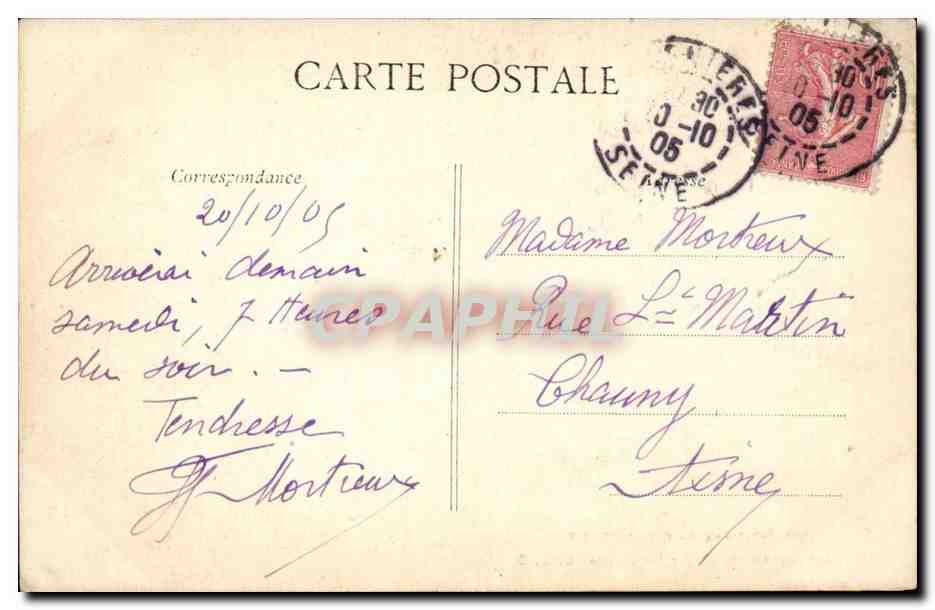 CARTE POSTALE
Correspondance
20/10/05
Arriverai demain
samedi, 7 Heures
du soir. —
Tendresse
Mortreux
Adresse
Madame Mortreux
Rue St Martin
Chauny
Aisne
30
0-10
05
SEINE
30
0-10
05
SEINE
CPAPHIL